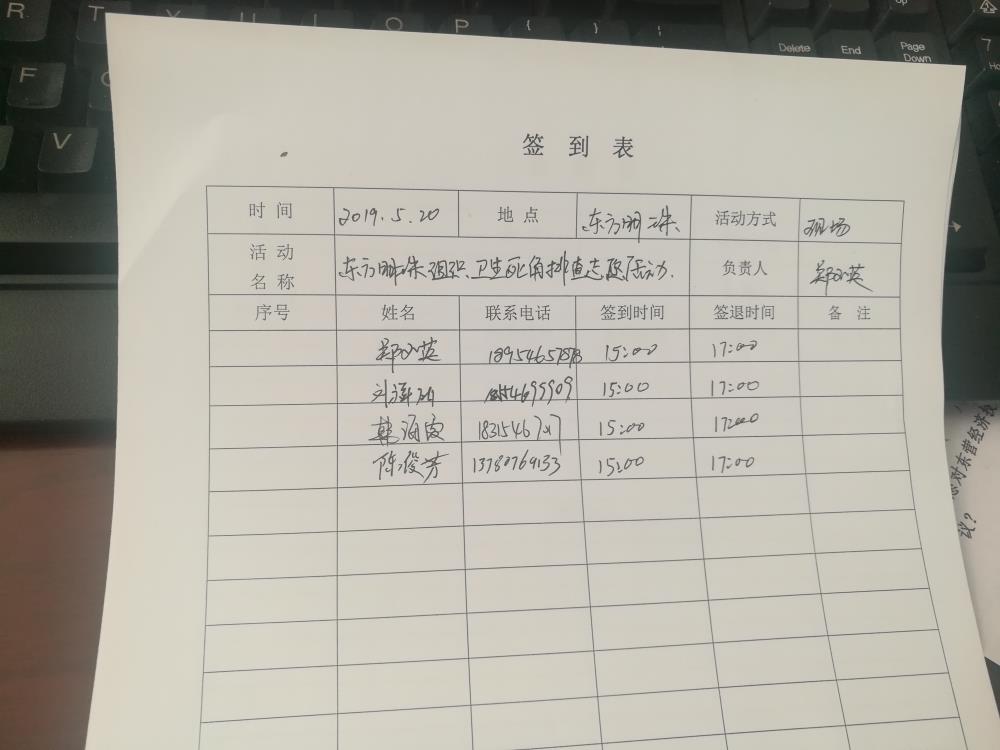 R T Y U I O P { } ;
Delete End Page Down
7
F
V
签 到 表
时 间 2019.5.20 地 点 东方明珠 活动方式 现场
活 动 名 称 东方明珠组织卫生死角排查志愿活动. 负责人 郑小英
序号 姓名 联系电话 签到时间 签退时间 备 注
郑小英 18954657878 15:00 17:00
15:00 17:00
韩海霞 15:00 17:00
陈俊芳 13780769133 15:00 17:00
对东营经济
议?